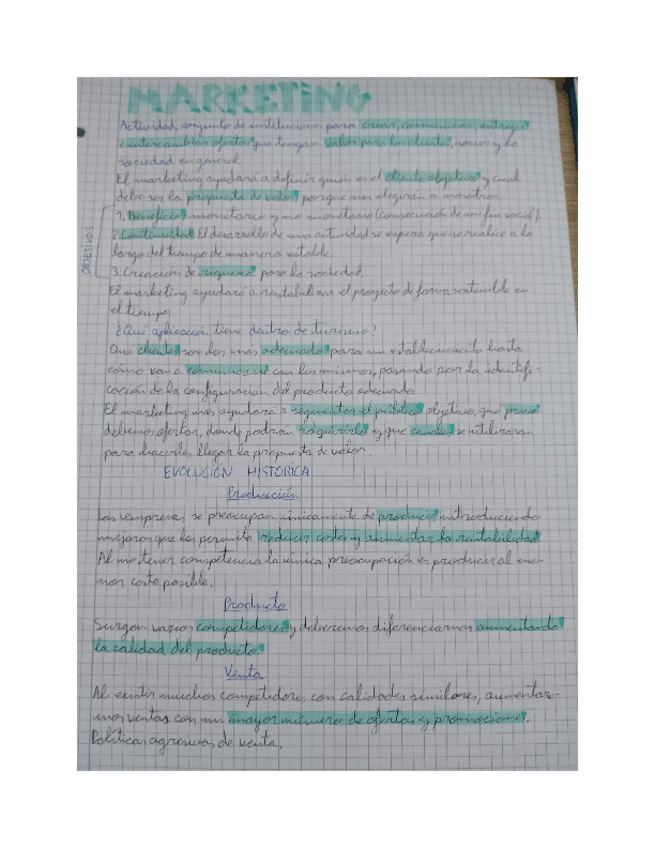 MARKETING
Actividad, conjunto de instituciones para crear, comunicar, entregar
e intercambiar ofertas que tengan valor para los clientes, socios y la
sociedad en general.
El marketing ayudará a definir quién es el cliente objetivo y cual
debe ser la propuesta de valor, porque nos elegirán a nosotros.
OBJETIVOS
1. Beneficio, monetario y no monetario (consecución de un fin social).
2. Continuidad. El desarrollo de una actividad se espera que se realice a lo
largo del tiempo de manera estable.
3. Creacción de riqueza para la sociedad.
El marketing ayudará a rentabilizar el proyecto de forma sostenible en
el tiempo.
¿Qué aplicación tiene dentro de turismo?
Que clientes son los más adecuados para un establecimiento hasta
cómo van a comunicarse con los mismos, pasando por la identifi-
cación de la configuración del producto adecuado.
El marketing nos ayudará a segmentar el público objetivo, qué precio
debemos ofertar, donde podrán adquirirlo y que canales se utilizaran
para hacerles llegar la propuesta de valor.
EVOLUCIÓN HISTÓRICA
Producción
Las empresas se preocupan únicamente de producir introduciendo
mejoras que les permita reducir costes y aumentar la rentabilidad.
Al no tener competencia la única preocupación es producir al me-
nor coste posible.
Producto
Surgen varios competidores y deberemos diferenciarnos aumentando
la calidad del producto.
Venta
Al existir muchos competidores con calidades similares, aumentare-
mos ventas con un mayor número de ofertas y promociones.
Políticas agresivas de venta.